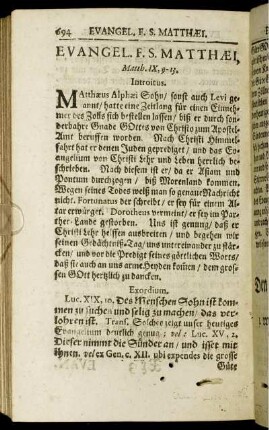 694 EVANGEL. F. S. MATTHÆI.
EVANGEL. F. S. MATTHÆI,
Matth. IX, 9-13.
Introitus.
MAtthæus Alphæi Sohn/ sonst auch Levi ge-
nannt/ hatte eine Zeitlang für einen Einneh-
mer des Zolls sich bestellen lassen/ biß er durch son-
derbahre Gnade GOttes von Christo zum Apostel-
Amt beruffen worden. Nach Christi Himmel-
fahrt hat er denen Juden geprediget/ und das Ev-
angelium von Christi Lehr und Leben herrlich be-
schrieben. Nach diesem ist er/ da er Asiam und
Pontum durchzogen/ biß Morenland kommen.
Wegen seines Todes weiß man so genaue Nachricht
nicht. Fortunatus der schreibt/ er sey für einem Al-
tar erwürget. Dorotheus vermeint/ er sey im Par-
ther-Lande gestorben. Uns ist genung/ daß er
Christi Lehr helffen ausbreiten/ und begehen wir
seinen Gedächtniß-Tag/ uns untereinander zu stär-
cken/ und vor die Predigt seines göttlichen Worts/
daß sie auch an uns arme Heyden kommen/ dem gros-
sen GOtt hertzlich zu dancken.
Exordium.
Luc. XIX, 10. Des Menschen Sohn ist kom-
men zu suchen und selig zu machen/ das ver-
lohren ist. Trans. Solches zeigt unser heutiges
Evangelium deutlich genug; vel: Luc. XV, 2.
Dieser nimmt die Sünder an/ und isset mit
ihnen. vel ex Gen. c. XII. ubi expendes die grosse
Güte